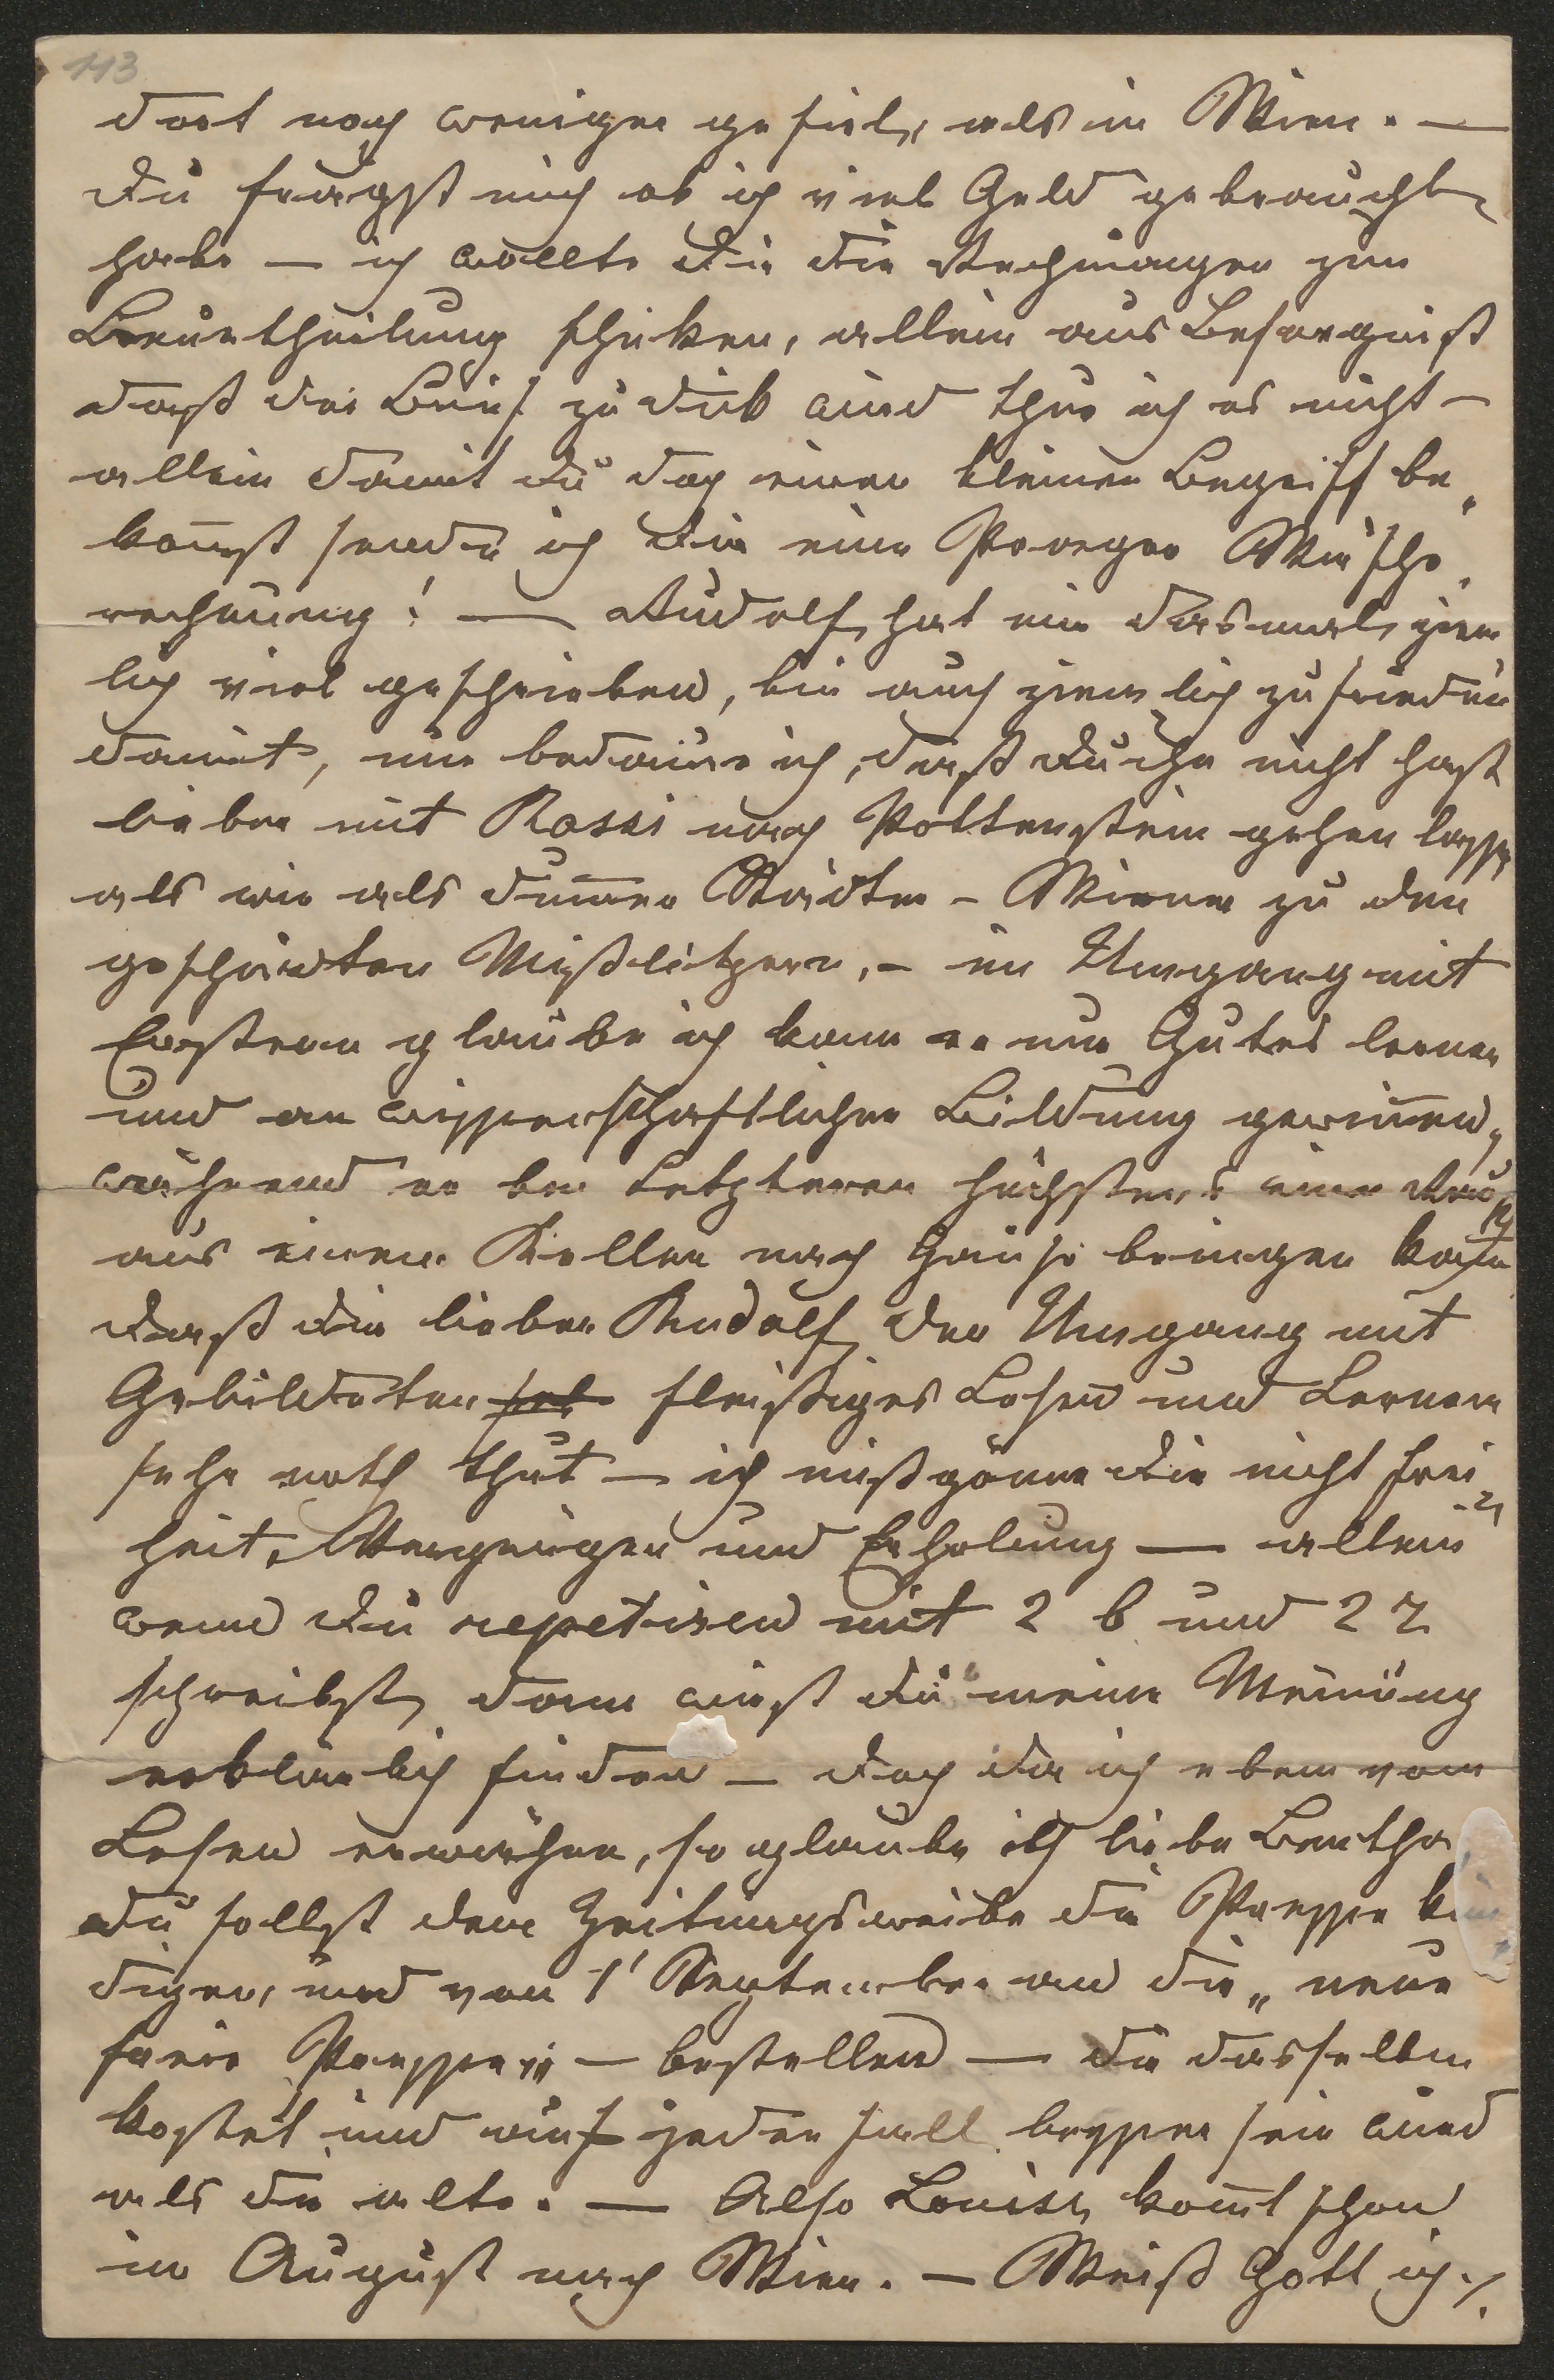 113
dort noch weniger gefiel, als in Wien. —
Du frägst mich ob ich viel Geld gebraucht
habe — ich wollte Dir die Rechnungen zur
Beurtheilung schicken, allein aus Besorgniß
daß der Brief zu dick wird thue ich es nicht —
allein damit Du doch einen kleinen Begriff be„
kom̄st sende ich Dir eine Prager Wäsche„
rechnung! — Rudolf hat mir dasmal ziem
lich viel geschrieben, bin auch ziemlich zufrieden
damit, nur bedaure ich, daß Du ihn nicht hast
lieber mit Rossi nach Pottenstein gehen lassen
als wie als dum̄er Städter - Wiener zu den
gescheidten Mißlitzern, — im Umgang mit
Ersteren glaube ich kann er nur Gutes lernen
und an wissenschaftlicher Bildung gewin̄en,
während er bei Letzteren höchstens einen
aus einem Keller nach Hause bringen kan̄
daß Dir lieber Rudolf der Umgang mit
Gebildeten fleißiges Lesen und Lernen
sehr noth thut — ich mißgönne Dir nicht Frei„
heit, Vergnügen und Erholung — allein
wenn Du repetiren mit 2 b und 2 r
schreibst, dann wirst Du meine Meinung
erklärlich finden — doch da ich eben vom
Lesen erwähne, so glaube ich liebe Bertha
Du sollst dem Zeitungsweibe die Presse kün
digen, und vom 1' September an die „neue
freie Presse" — bestellen — die dasselbe
kostet und auf jeden Fall besser sein wird
als die alte. — Also Louise kom̄t schon
im August nach Wien. — Weiß Gott ich ./.